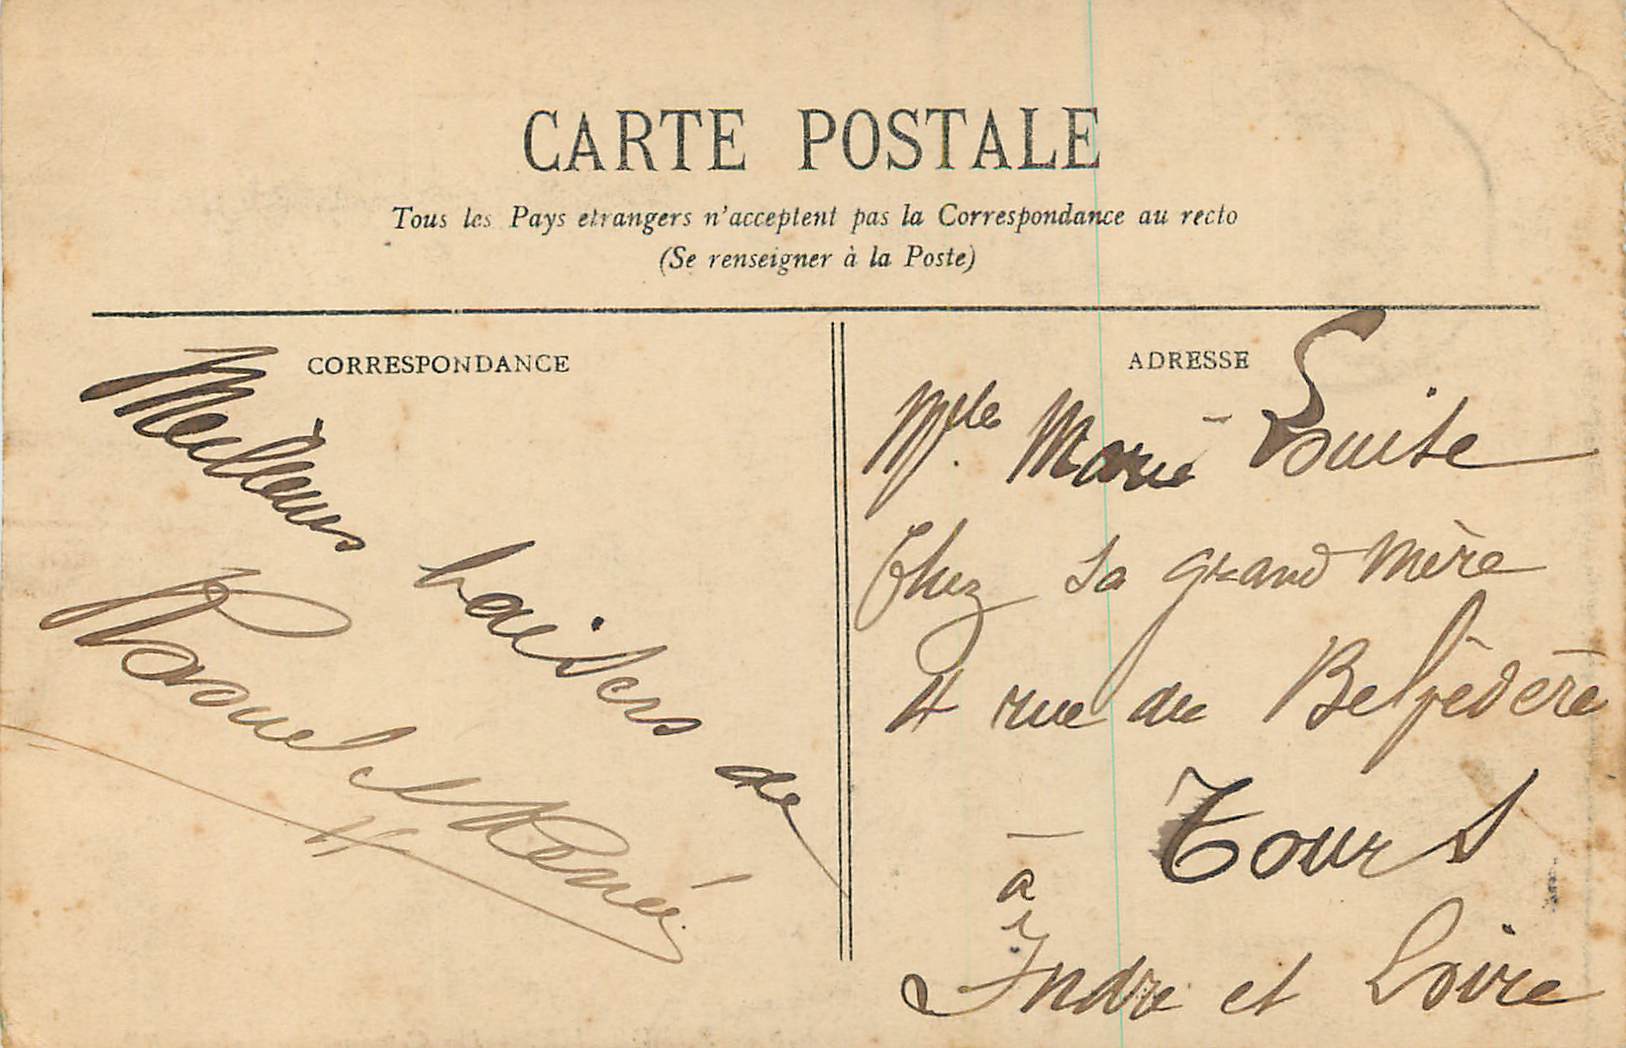 CARTE POSTALE
Tous les Pays etrangers n'acceptent pas la Correspondance au recto
(Se renseigner à la Poste)
CORRESPONDANCE
Meilleurs baisers de
Raoul et Renée
ADRESSE
Mlle Marie-Louise
Chez sa grand mère
4 rue du Belvédère
à Tours
Indre et Loire